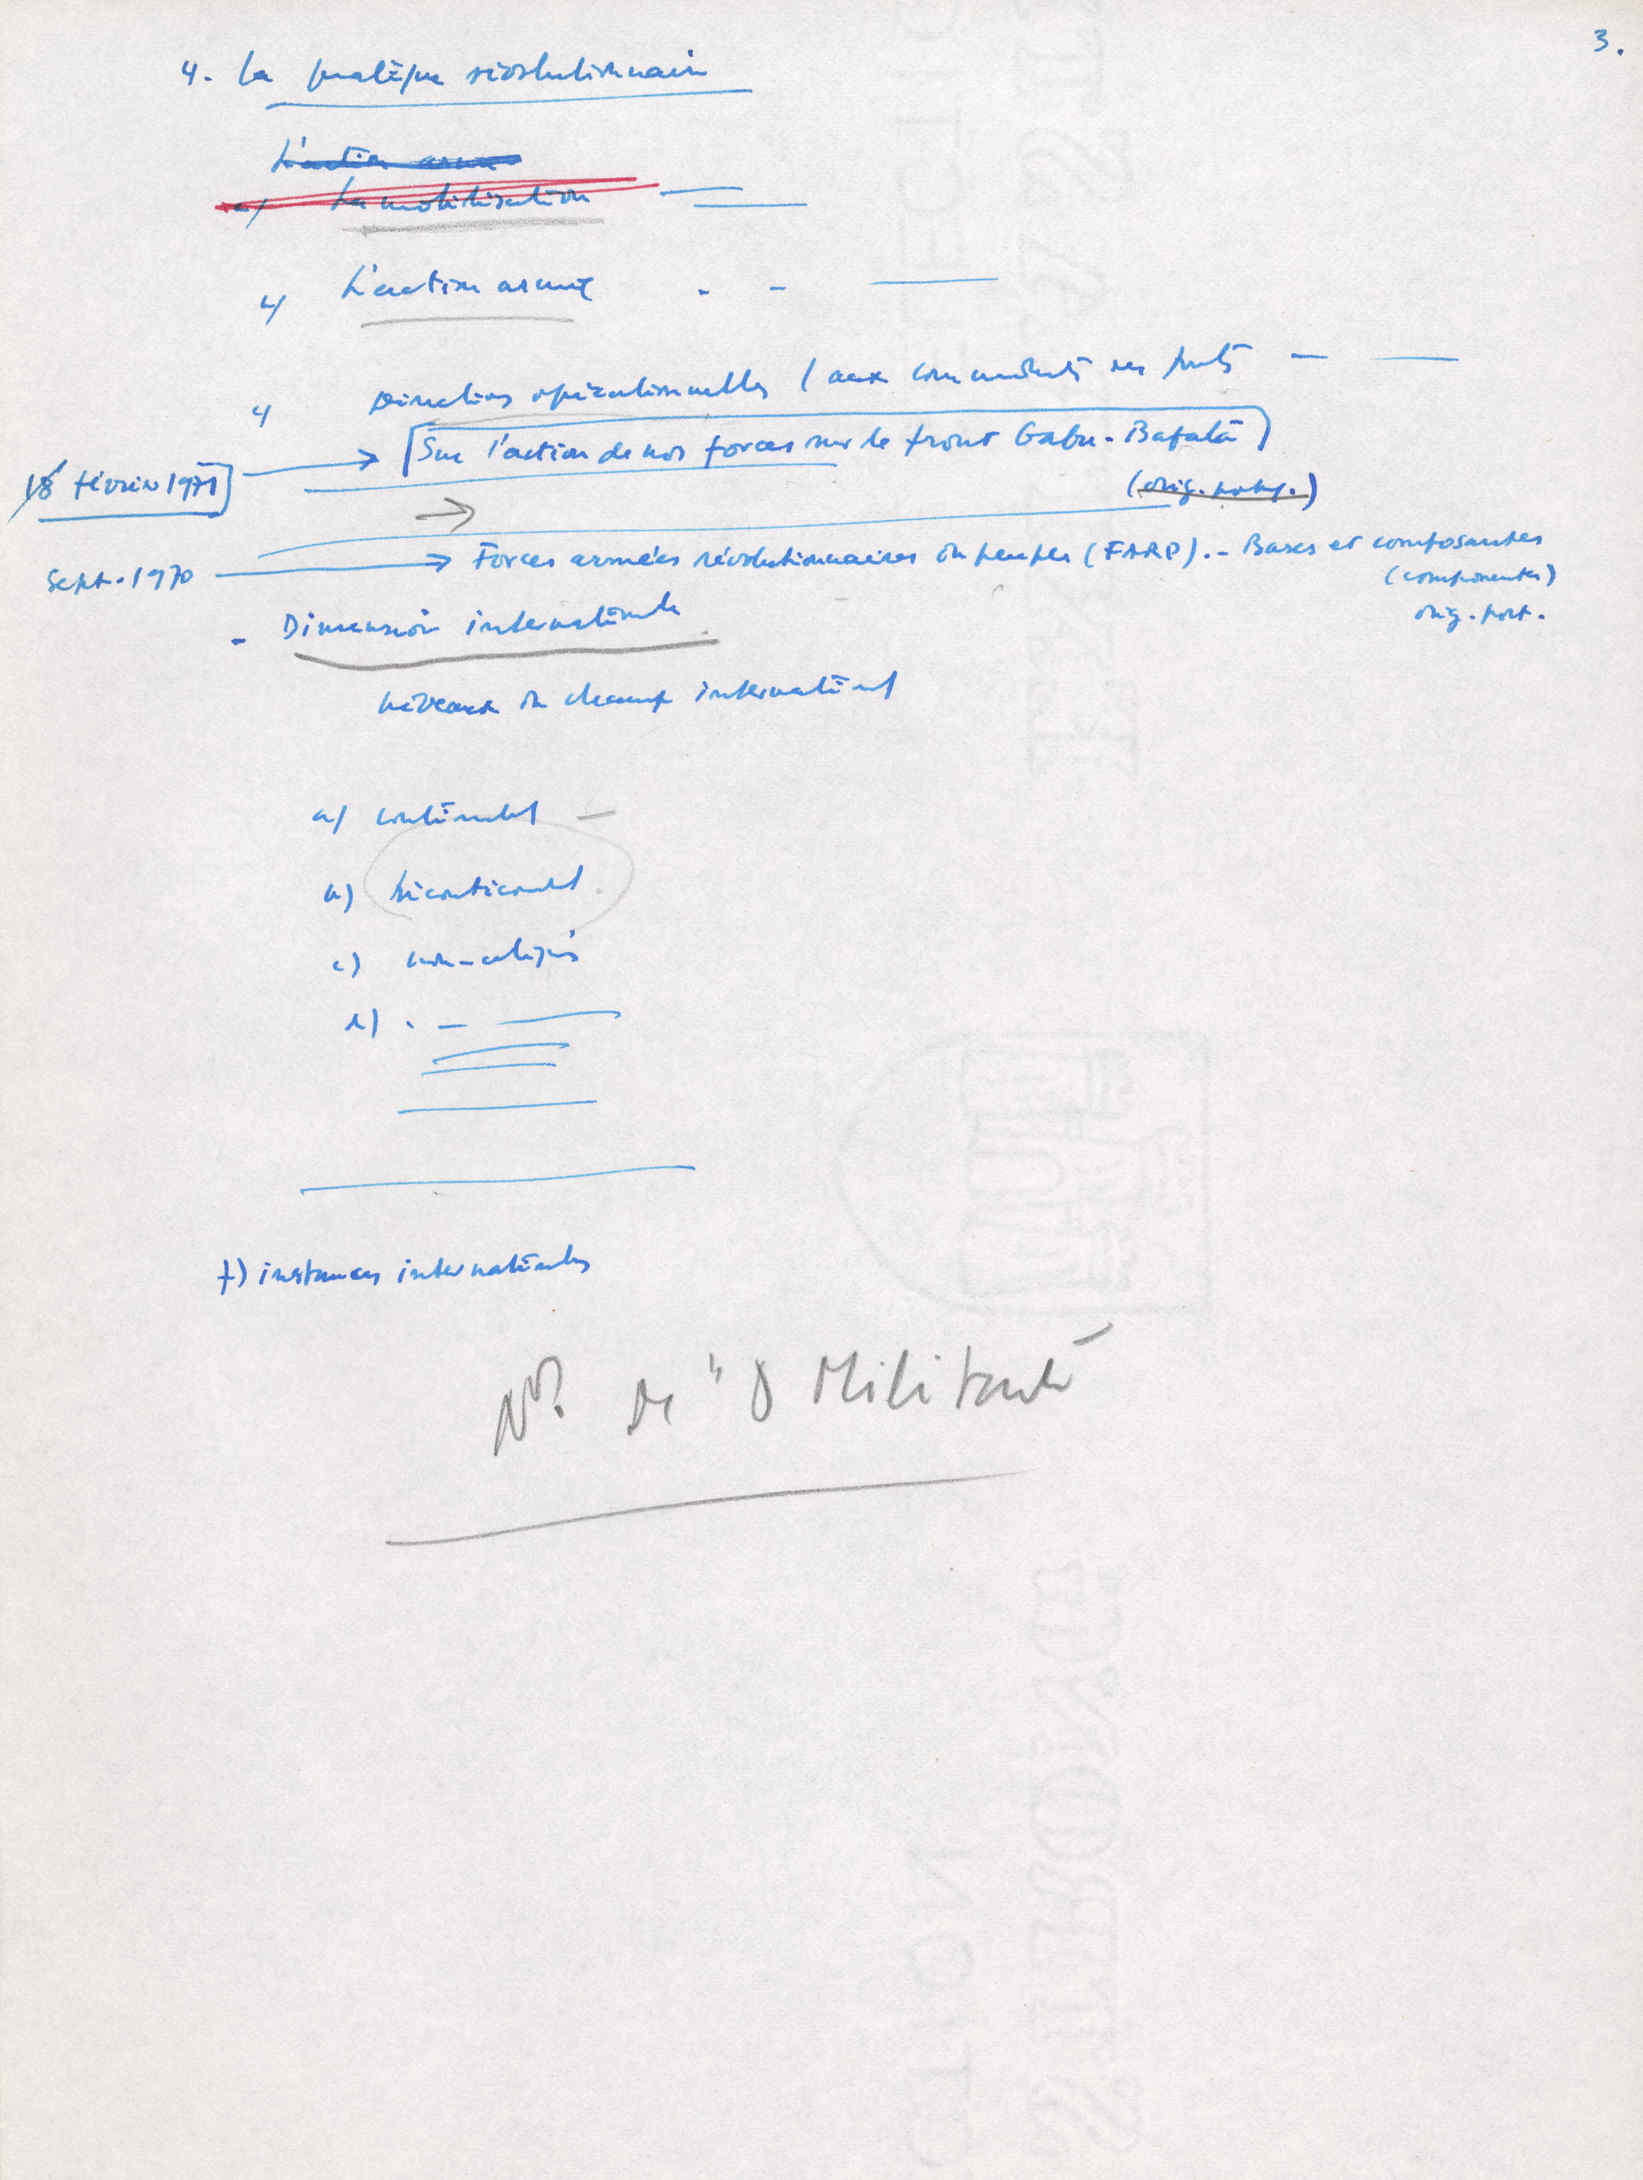 3.
4. La pratique révolutionnaire
L'action armée
a) La mobilisation
L'action armée
Directives opérationnelles (aux commandants des fronts
Sur l'action de nos forces sur le front Gabu-Bafatá
18 février 1971
(orig. portug.)
Sept. 1970 → Forces armées révolutionnaires du peuple (FARP). - Bases et composantes
(componentes)
orig. port.
- Dimension internationale
niveaux du champ international
a) continental
b) tricontinental
c) non-alignés
d)
f) instances internationales
Nº de "O Militante